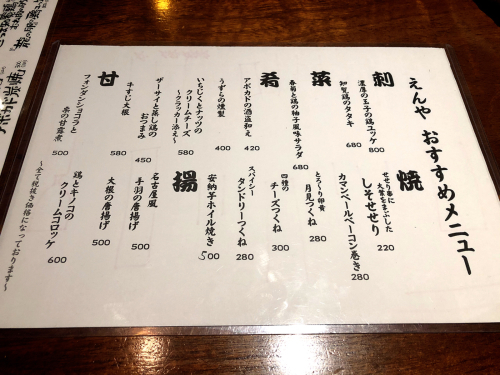 えんや おすすめメニュー
刺
濃厚の玉子の鶏ユッケ
800
知覧鶏のタタキ
680
菜
春菊と鶏の柚子風味サラダ
680
肴
アボカドの酒盗和え
420
うずらの燻製
400
いちじくとナッツの
クリームチーズ
～クラッカー添え～
580
ザーサイと蒸し鶏の
おつまみ
450
牛すじ大根
580
甘
フォンダンショコラと
栗の甘露煮
500
焼
せせり串に
大葉をまぶした
しそせせり
220
カマンベールベーコン巻き
280
とろ～り卵黄
月見つくね
280
四種の
チーズつくね
300
スパイシー
タンドリーつくね
280
安納芋ホイル焼き
500
揚
名古屋風
手羽の唐揚げ
500
大根の唐揚げ
500
鶏とキノコの
クリームコロッケ
600
～全て税抜き価格になっております～